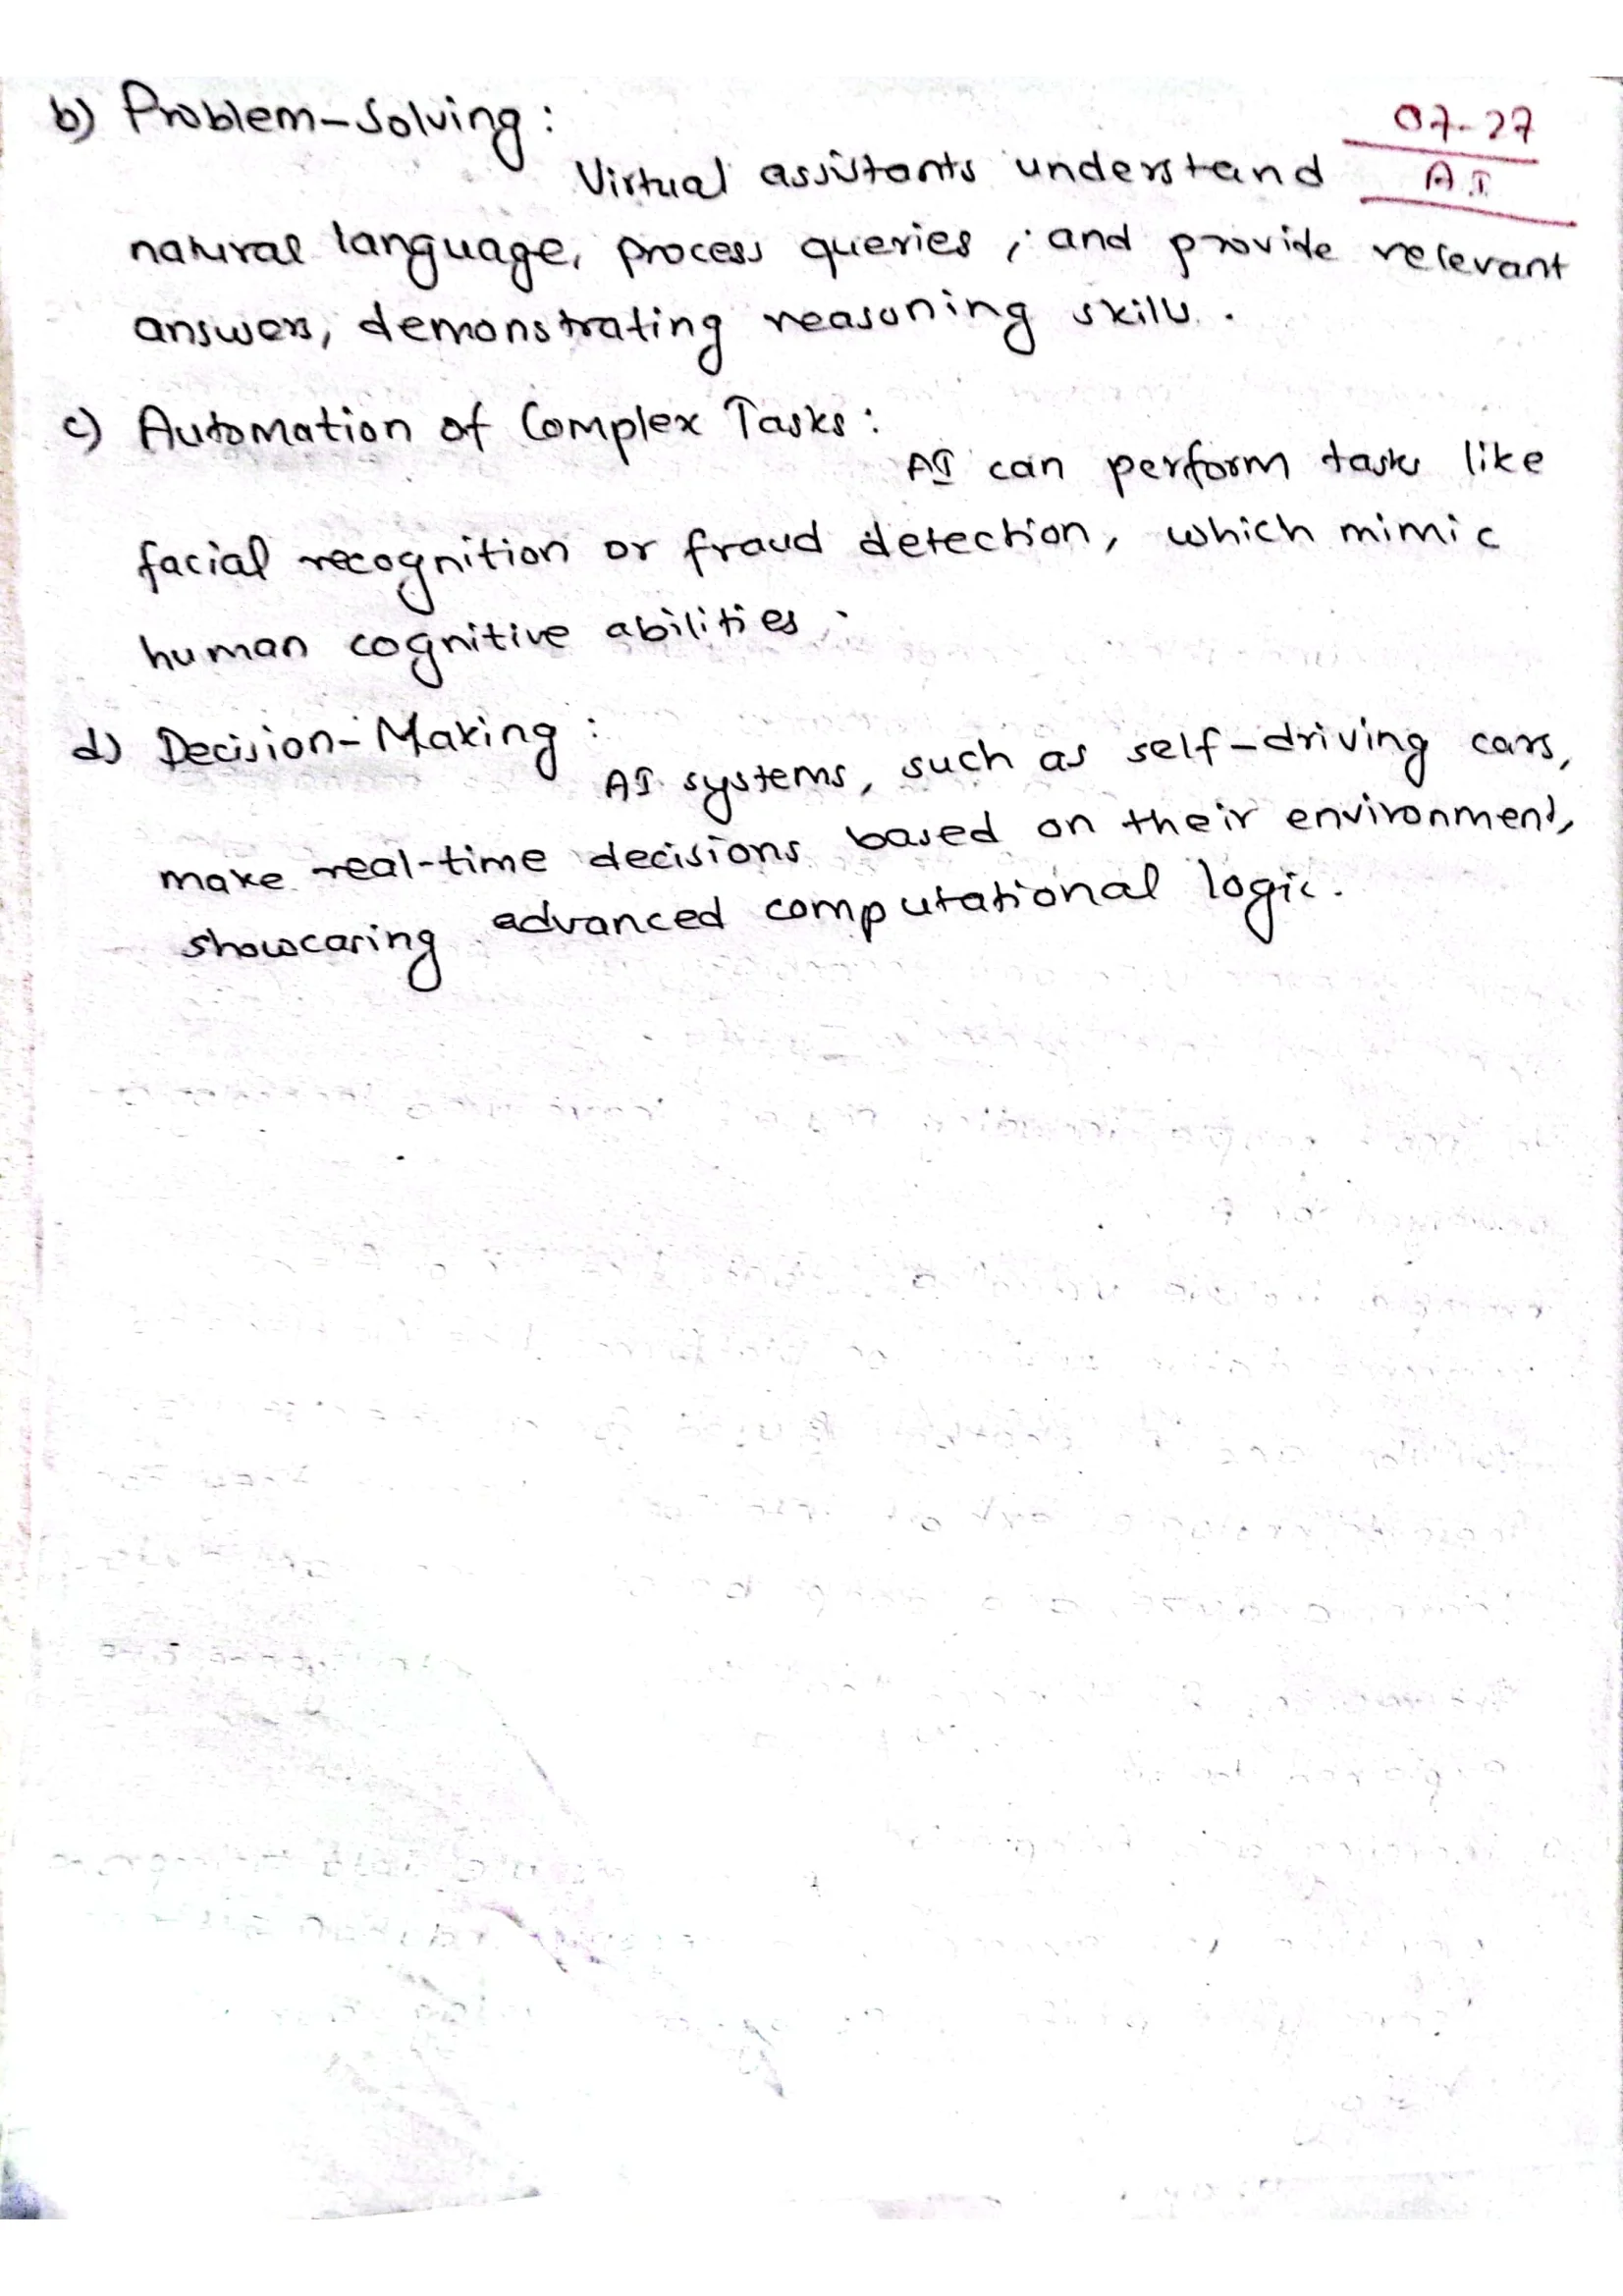 b) Problem-Solving :
07-27
AI
Virtual assistants understand
natural language, process queries, and provide relevant
answers, demonstrating reasoning skills.
c) Automation of Complex Tasks :
AI can perform tasks like
facial recognition or fraud detection, which mimic
human cognitive abilities.
d) Decision-Making :
AI systems, such as self-driving cars,
make real-time decisions based on their environment,
showcasing advanced computational logic.